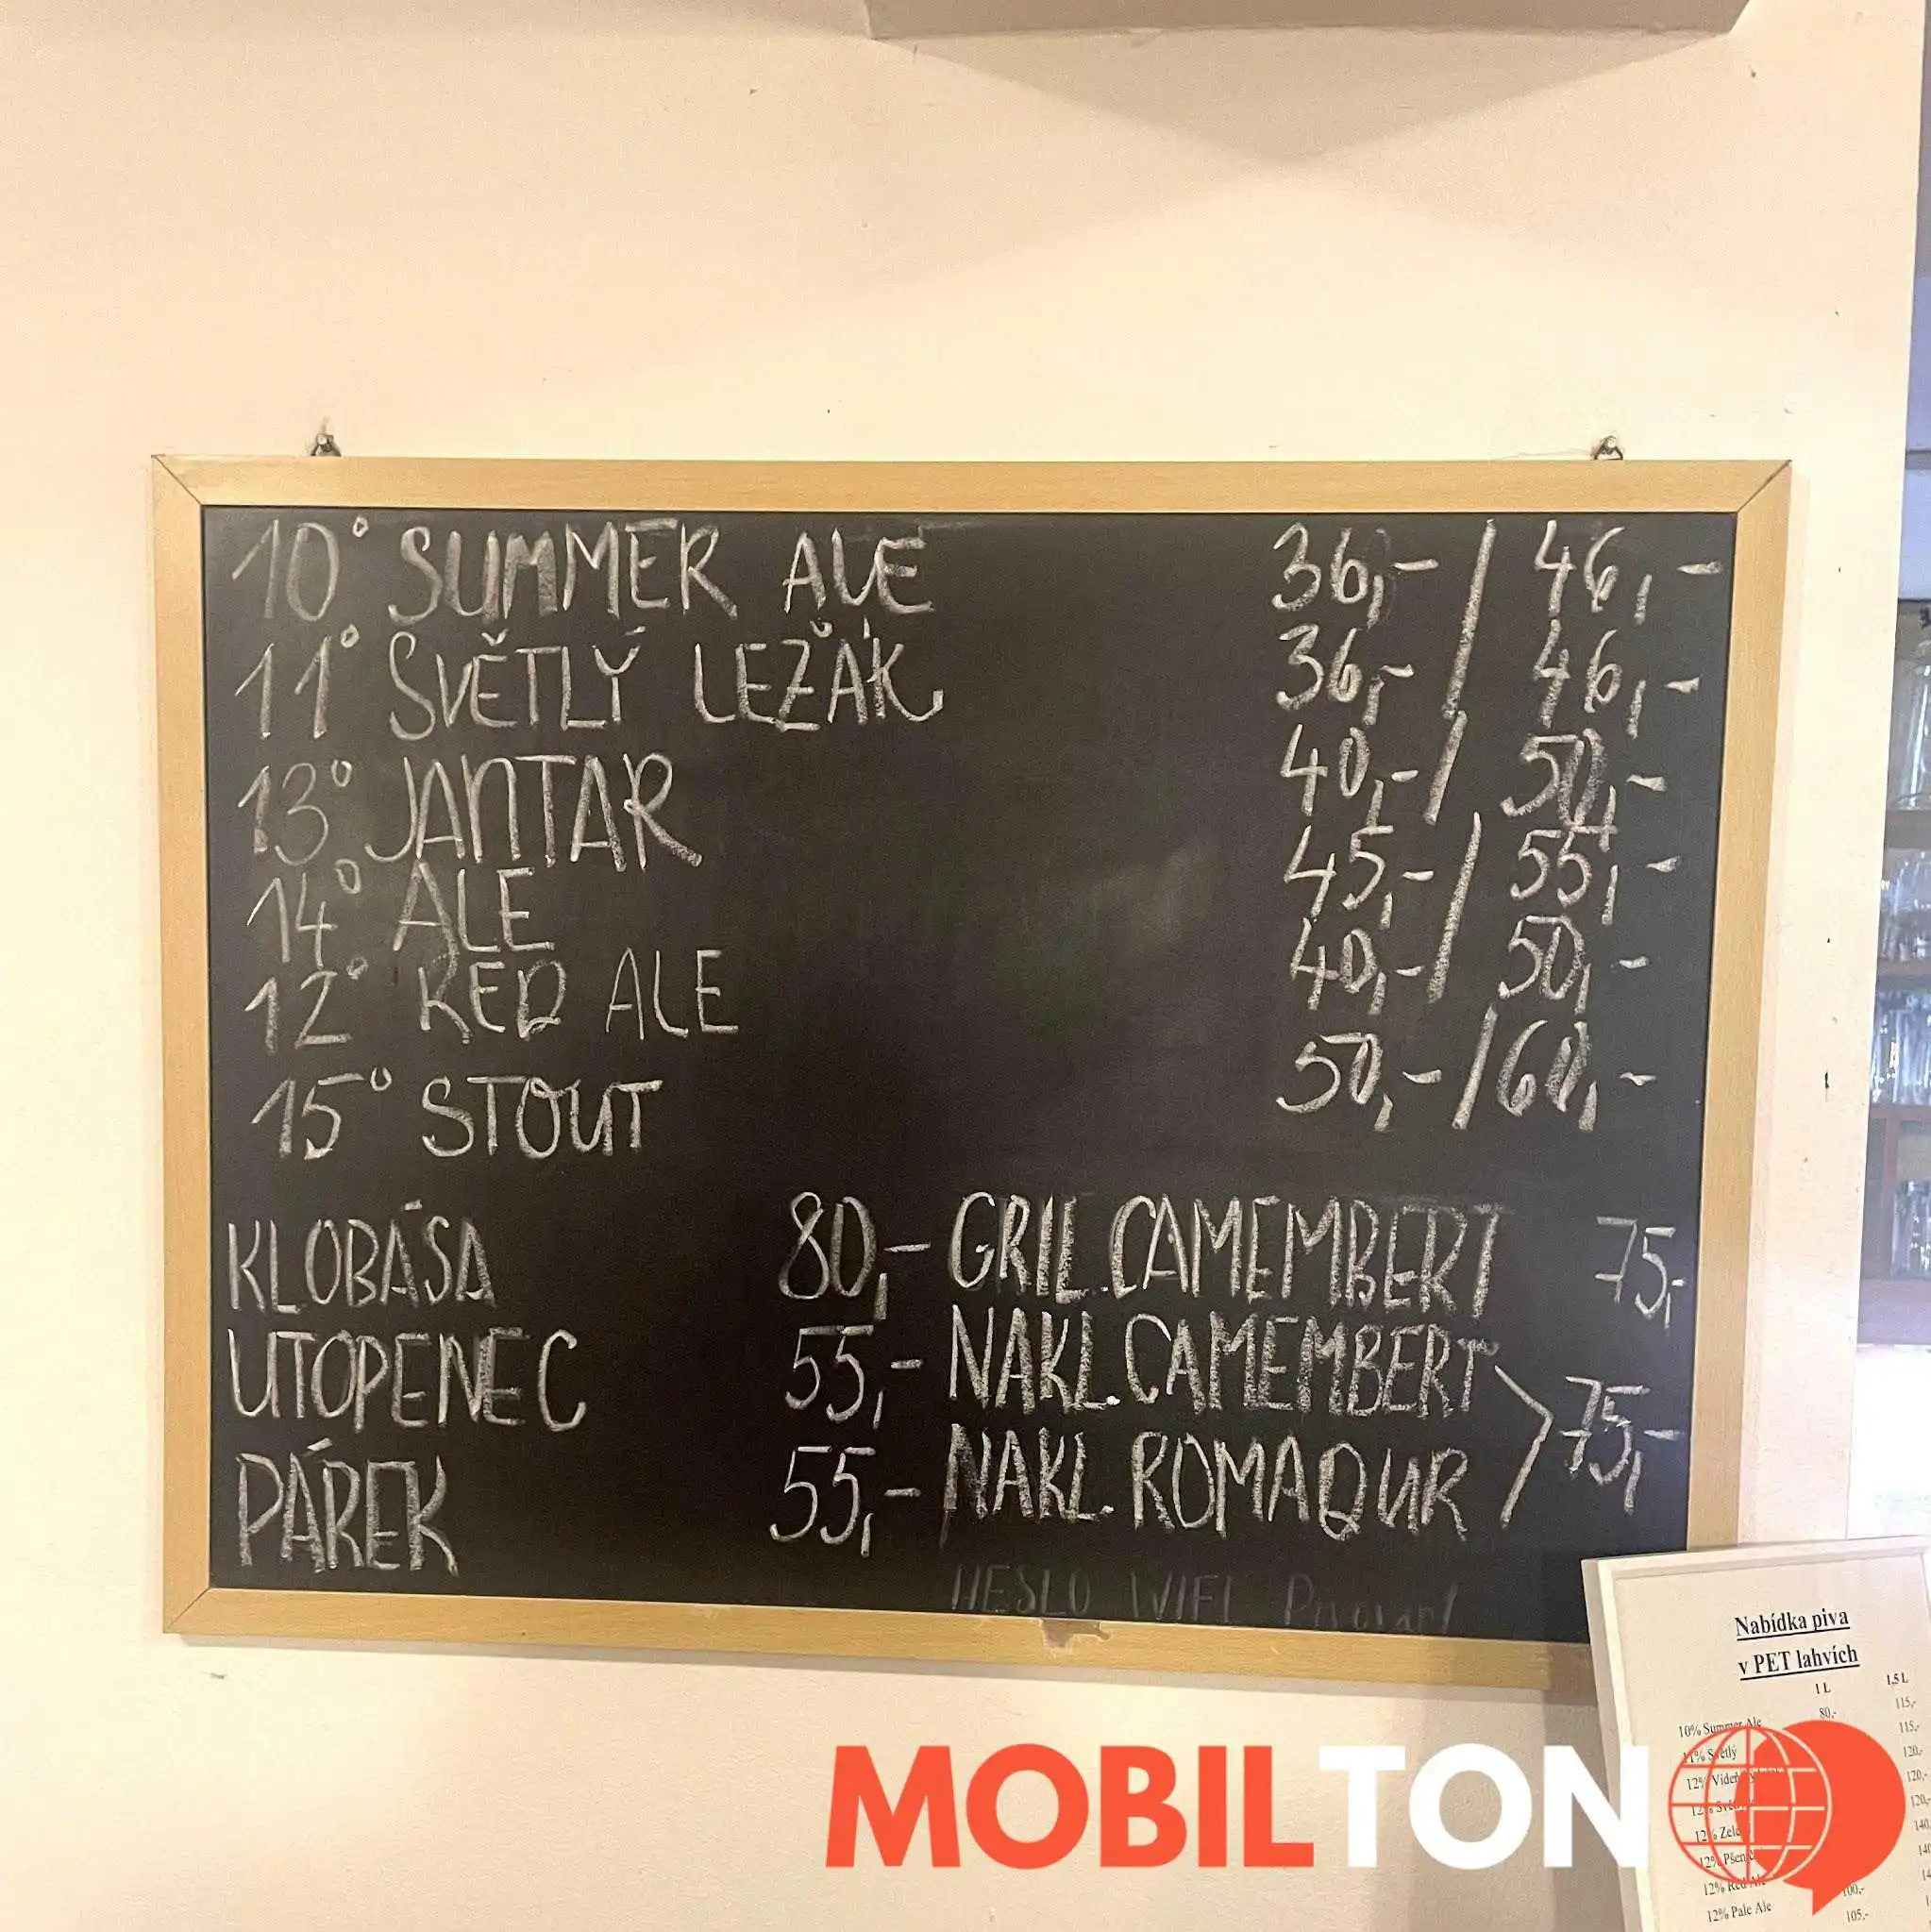 10° SUMMER ALE 36,- / 46,-
11° SVĚTLÝ LEŽÁK 36,- / 46,-
13° JANTAR 40,- / 50,-
14° ALE 45,- / 55,-
12° RED ALE 40,- / 50,-
15° STOUT 50,- / 60,-
KLOBÁSA 80,- GRIL. CAMEMBERT 75,-
UTOPENEC 55,- NAKL. CAMEMBERT
75,-
PÁREK 55,- NAKL. ROMAQUR
HESLO WIFI
Nabídka piva
v PET lahvích
1 L 1,5 L
10% Summer Ale 80,- 115,-
11% Světlý 115,-
12% 120,-
12% 120,-
12% 120,-
12% 140,
12% Red Ale
12% Pale Ale 105,-
MOBILTON